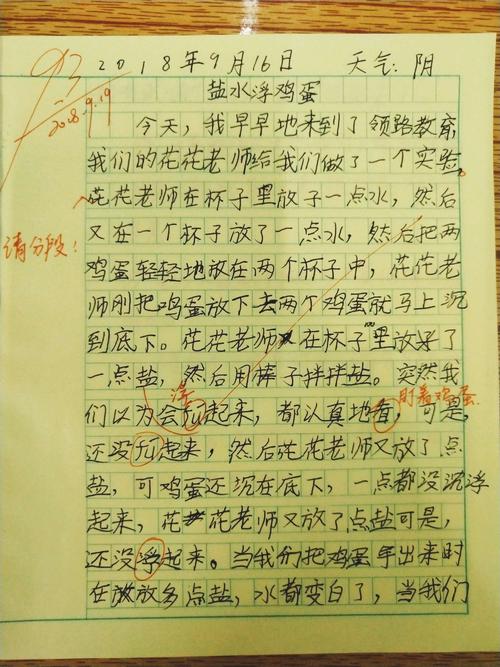 93
2018.9.19
2018年9月16日 天气:阴
盐水浮鸡蛋
今天,我早早地来到了领路教育,
我们的花花老师给我们做了一个实验。
花花老师在杯子里放子一点水,然后
请分段!
又在一个杯子放了一点水,然后把两
鸡蛋轻轻地放在两个杯子中,花花老
师刚把鸡蛋放下去两个鸡蛋就马上沉
到底下。花花老师在杯子里放了
一点盐,然后用棒子拌拌盐。突然我
浮
盯着鸡蛋
们以为会起来,都认真地看,可是,
还没起来,然后花花老师又放了点
盐,可鸡蛋还沉在底下,一点都没沉浮
起来,花花老师又放了点盐可是,
还没浮起来。当我们把鸡蛋手出来时
在放放多点盐,水都变白了,当我们